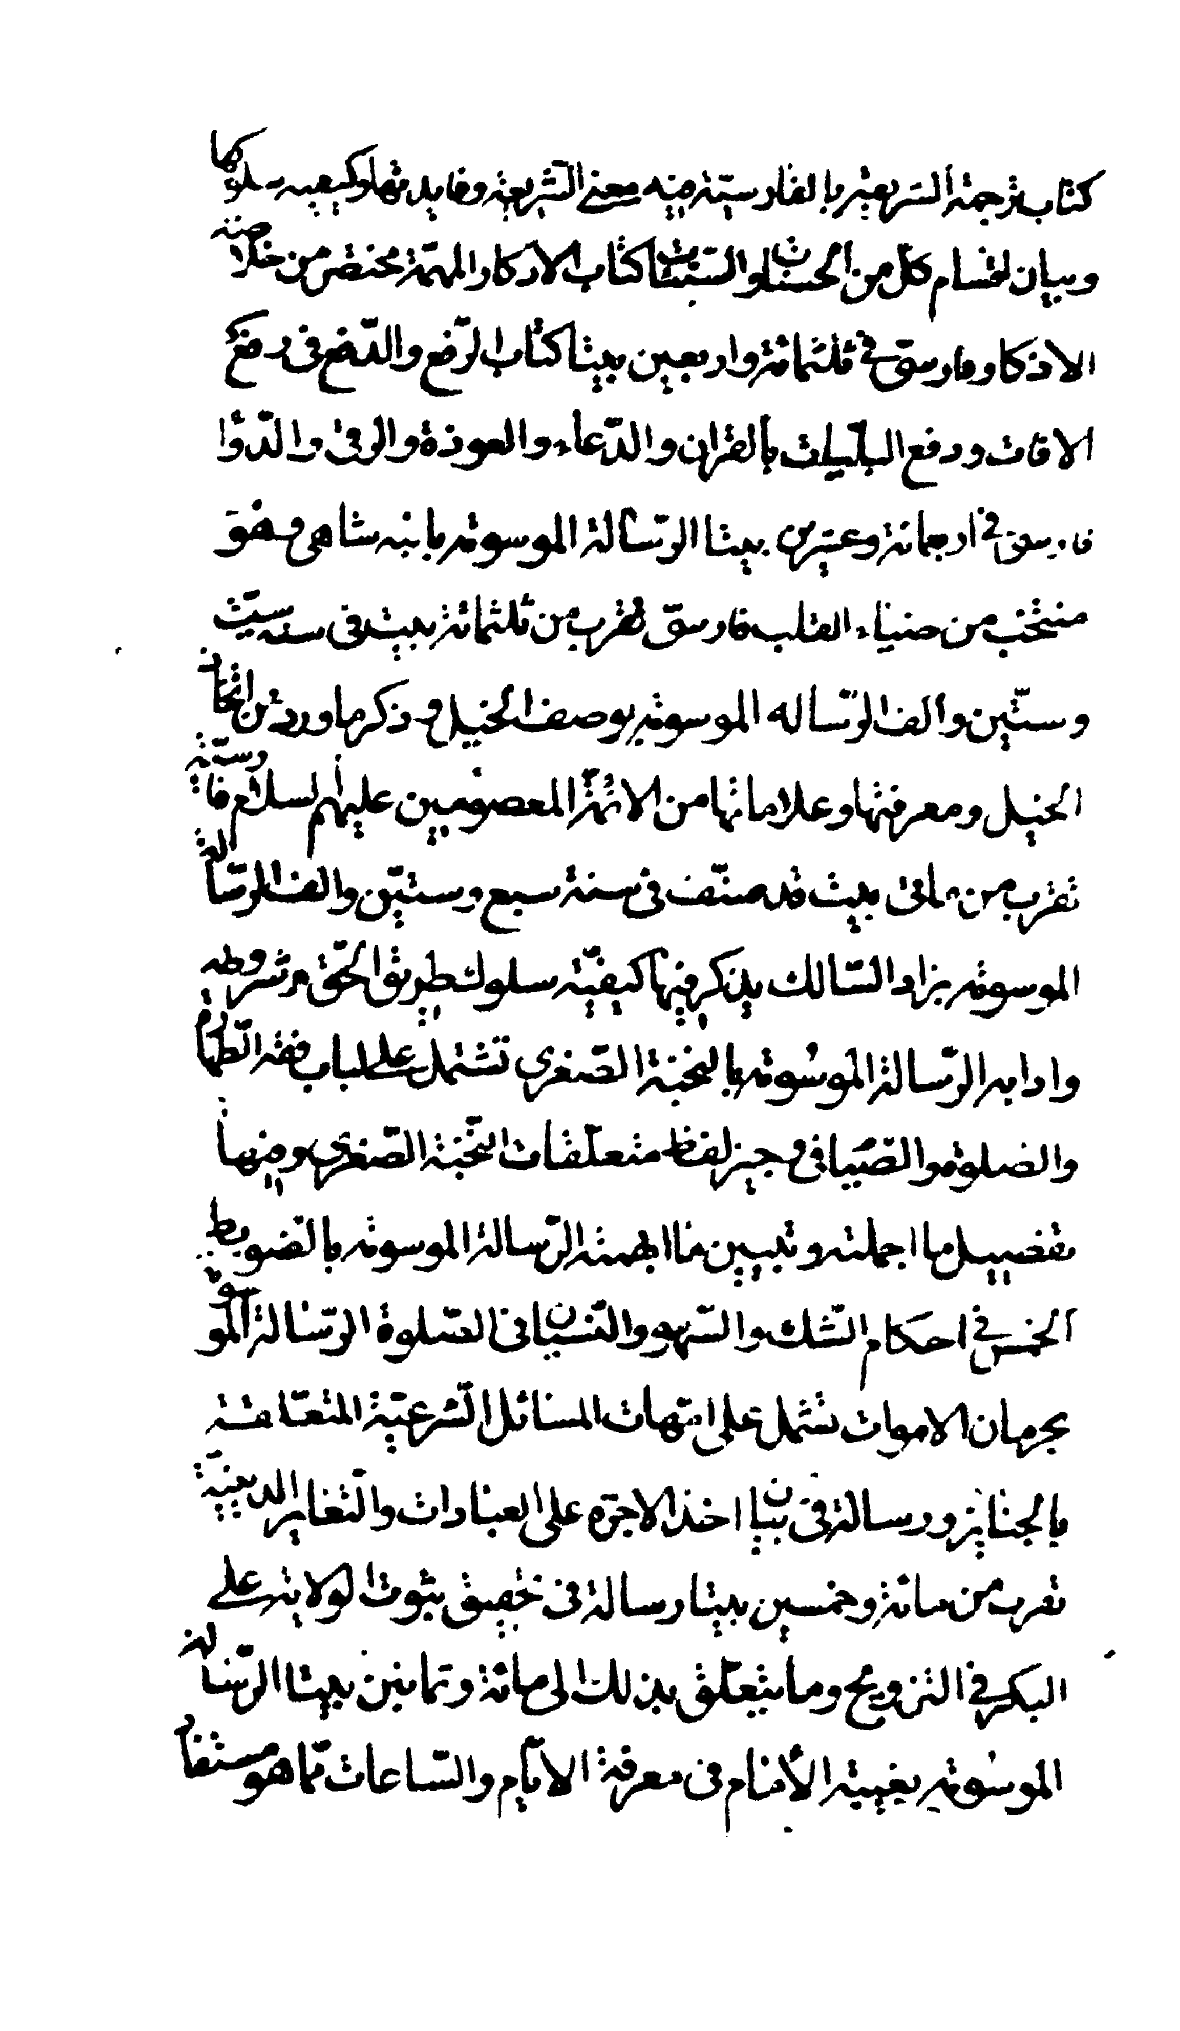 كتاب ترجمة الشريعة بالفارسية فيه معنى الشريعة وفايدتها وكيفية سلوكها
وبيان اقسام كل من الحسنات والسيئات كتاب الاذكار المهمّة مختصر من خلاصة
الاذكار فارسىّ في ثلثمائة واربعين بيتا كتاب الرّفع والدّفع فى رفع
الافات ودفع البليّات بالقران والدّعاء والعوذة والرقى والدّوا
فارسىّ في اربعمائة وعشرين بيتا الرّسالة الموسومه بابنه شاهى وهو
منتخب من ضياء القلب فارسىّ يقرب من ثلثمائة بيت فى سنه ستّ
وستّين والف الرّساله الموسومه بوصف الخيل وذكر ما ورد من اتخاذ
الخيل ومعرفتها وعلاماتها من الائمّة المعصومين عليهم السلام فارسيّة
تقرب من مأتى بيت قد صنّف فى سنة سبع وستّين والف الرّسالة
الموسومه بزاد السّالك يذكر فيها كيفيّة سلوك طريق الحقّ وشروطه
وادابه الرّسالة الموسومه بالنخبة الصّغرى تشتمل على لباب فقه الطّهارة
والصلوة والصّيام فى وجيز لفظ متعلّقات النّخبة الصّغرى وفيها
تفصيل ما اجملته وتبيين ما ابهمته الرّسالة الموسومه بالضوابط
الخمس في احكام الشّك والسّهو والنّسيان فى الصّلوة الرّسالة الموسومة
بجرمان الاموات تشتمل على امّهات المسائل الشّرعيّة المتعلّقة
بالجنايز ورسالة فى بيان اخذ الاجرة على العبادات والشّعاير الدينيّة
تقرب من مائة وخمسين بيتا رسالة فى تحقيق ثبوت الولاية على
البكر في التزويج وما يتعلّق بذلك الى مائة وثمانين بيتا الرّسالة
الموسومه بغنية الأنام فى معرفة الايّام والسّاعات ممّا هو مستفاد